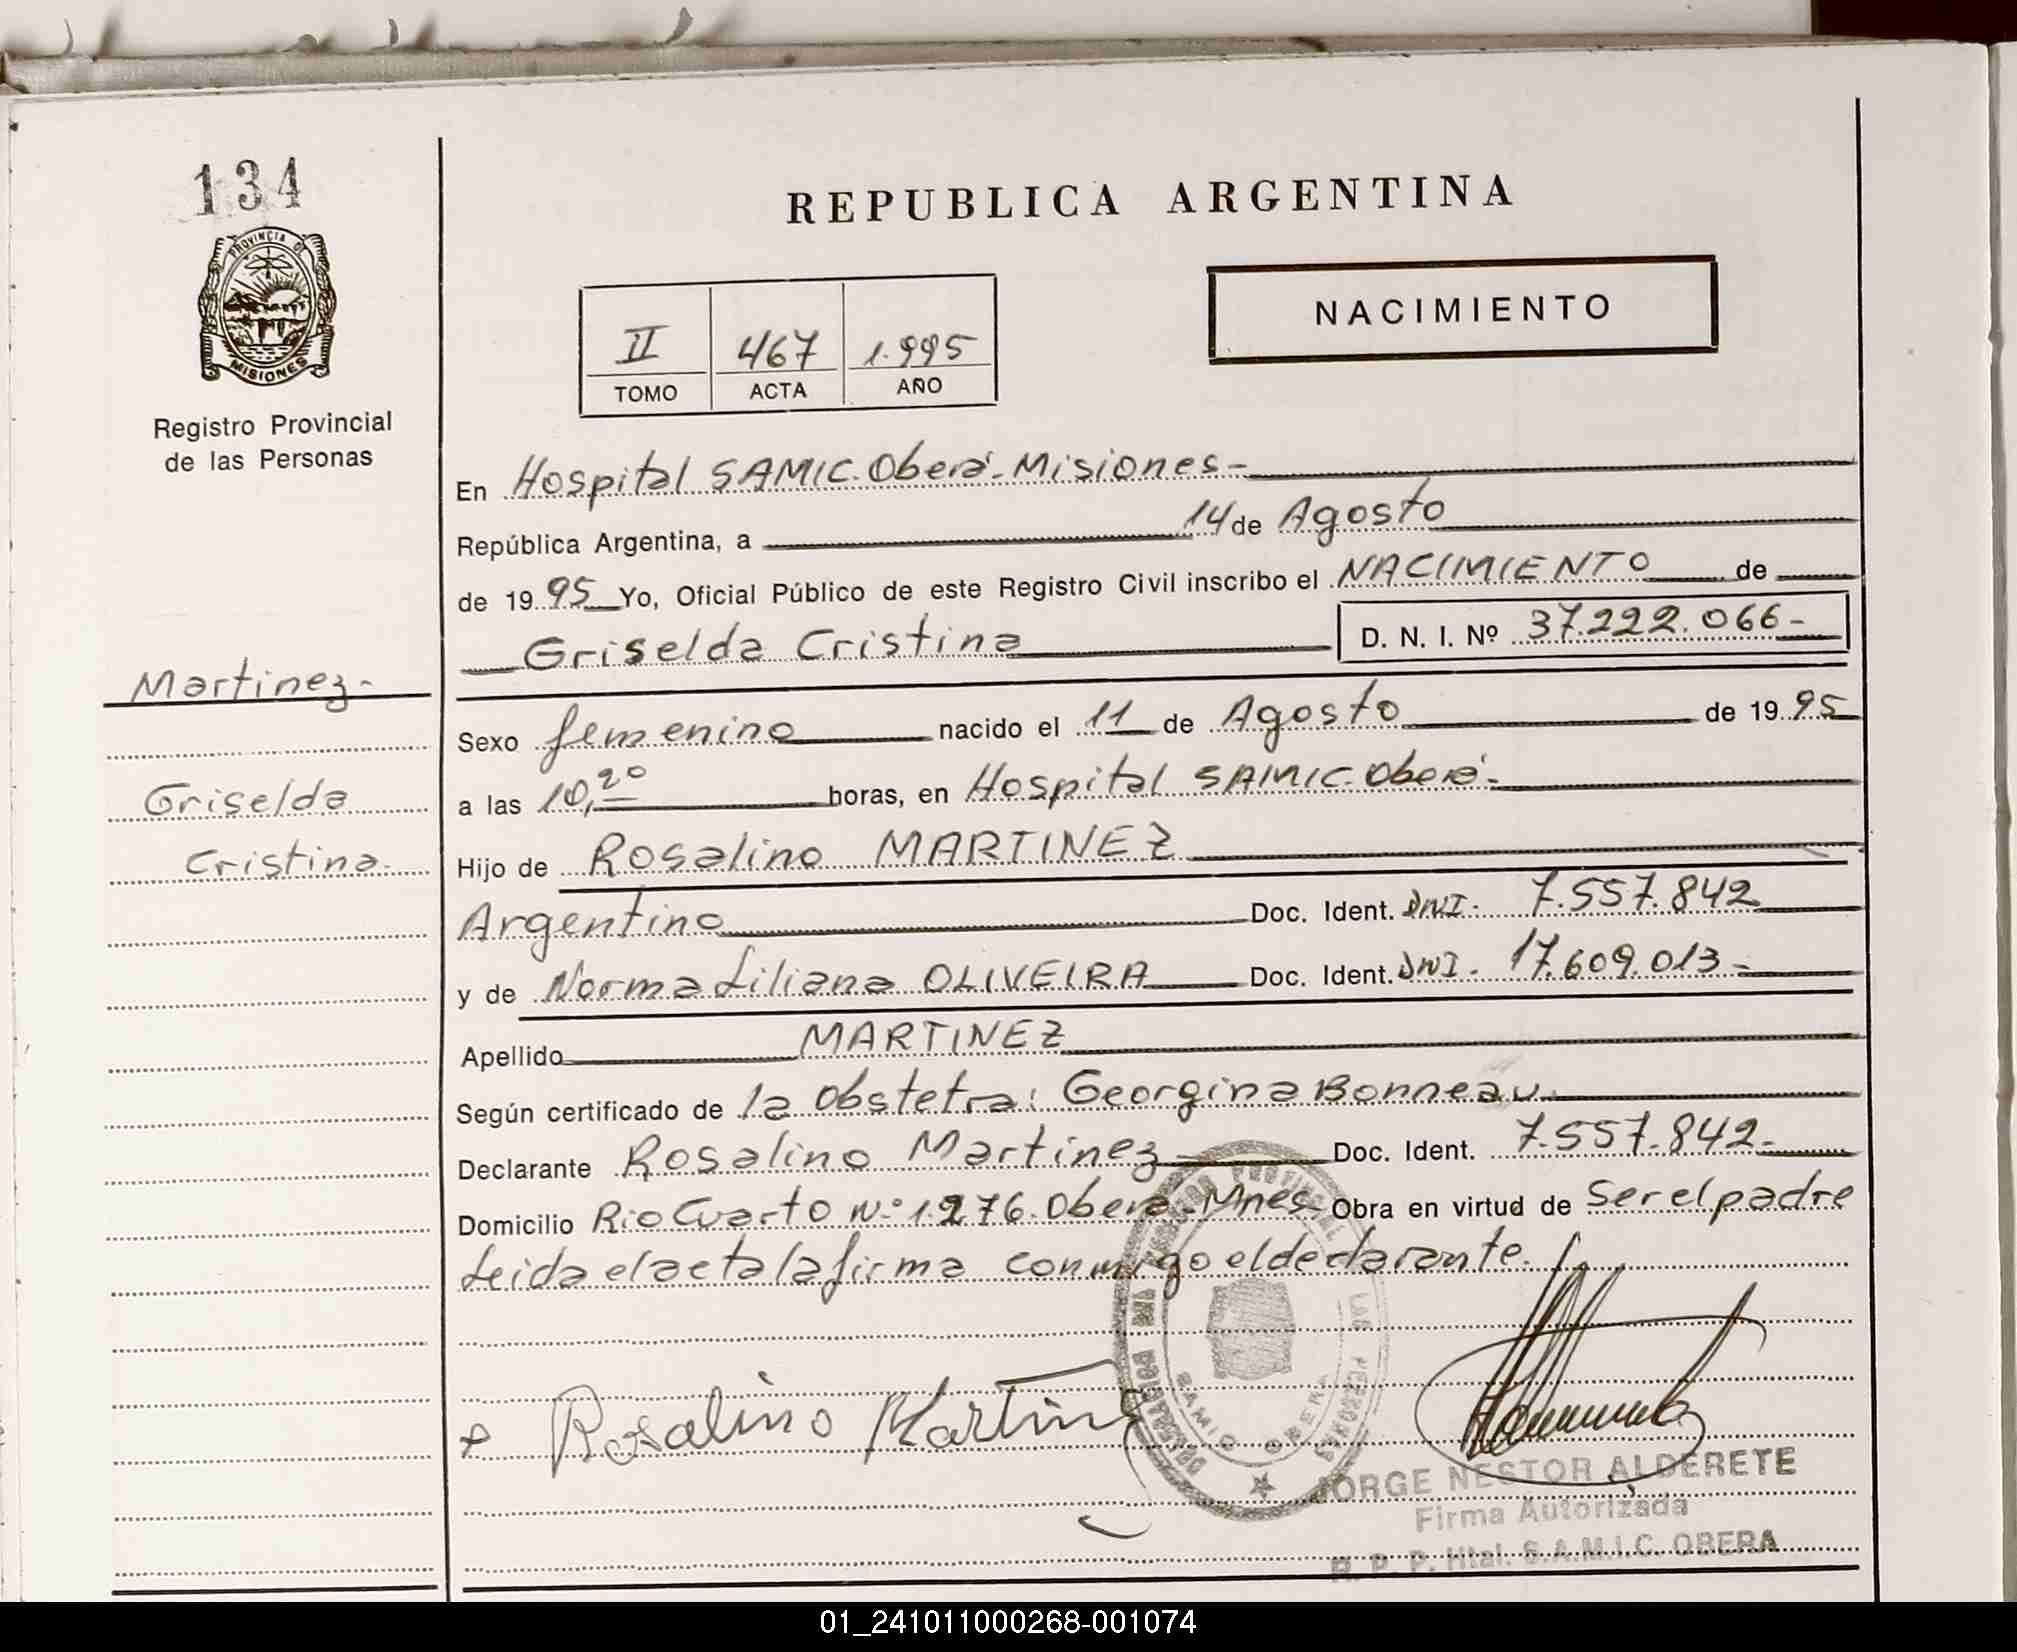 134
PROVINCIA D
MISIONES
Registro Provincial
de las Personas
REPUBLICA ARGENTINA
NACIMIENTO
II 467 1.995
TOMO ACTA AÑO
En Hospital SAMIC. Oberá. Misiones -
República Argentina, a 14 de Agosto
de 19 95 Yo, Oficial Público de este Registro Civil inscribo el NACIMIENTO de
Griselda Cristina D. N. I. Nº 37.222.066-
Martinez -
Griselda
Cristina.
Sexo femenino nacido el 11 de Agosto de 19 95
a las 10,20 horas, en Hospital SAMIC. Oberá -
Hijo de Rosalino MARTINEZ
Argentino Doc. Ident. DNI. 7.557.842
y de Norma Liliana OLIVEIRA Doc. Ident. DNI. 17.609.013-
Apellido MARTINEZ
Según certificado de la Obstetra: Georgina Bonneau.
Declarante Rosalino Martinez Doc. Ident. 7.557.842-
Domicilio Rio Cuarto Nº 1.276. Oberá. Mnes. Obra en virtud de Ser el padre
Leida el acta la firma conmigo el declarante.
Rosalino Martinez
LAS PERSONAS
SAMIC OBERA
JORGE NESTOR ALDERETE
Firma Autorizada
R. P. P. Htal. S.A.M.I.C. OBERA
01_241011000268-001074